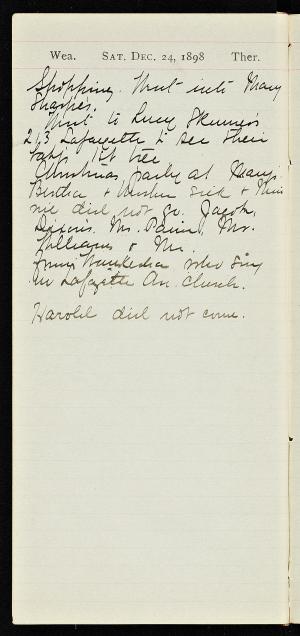 Wea. SAT. DEC. 24, 1898 Ther.
Shopping. Went into Mary
Sharpes.
Went to Lucy Skinners
213 Lafayette to see their
baby. 1st tree
Christmas party at Mary's
Bertha + sick +
nie did not go. Jacob,
Dixons. Mr. Paine, Mr.
Williams + Mr.
from who sing
in Lafayette Av. Church.
Harold did not come.